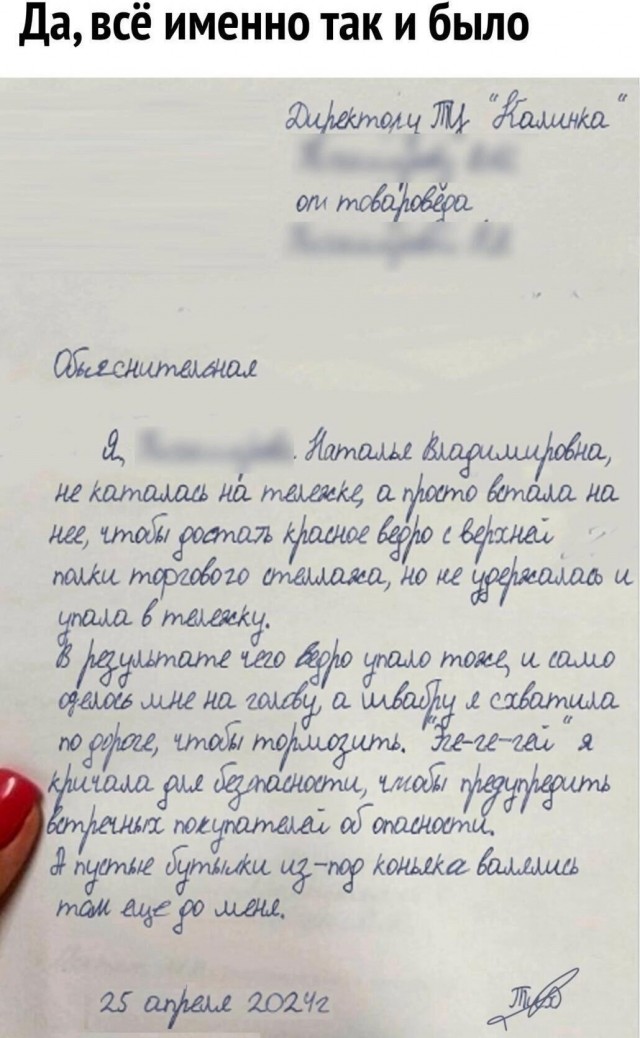 Да, всё именно так и было
Директору ТЦ "Калинка"
от товароведа
Объяснительная
Я, Наталья Владимировна,
не каталась на тележке, а просто встала на
нее, чтобы достать красное ведро с верхней
полки торгового стеллажа, но не удержалась и
упала в тележку.
В результате чего ведро упало тоже, и само
оделось мне на голову, а швабру я схватила
по дороге, чтобы тормозить. "Ге-ге-гей" я
кричала для безопасности, чтобы предупредить
встречных покупателей об опасности.
А пустые бутылки из-под коньяка валялись
там еще до меня.
25 апреля 2024г